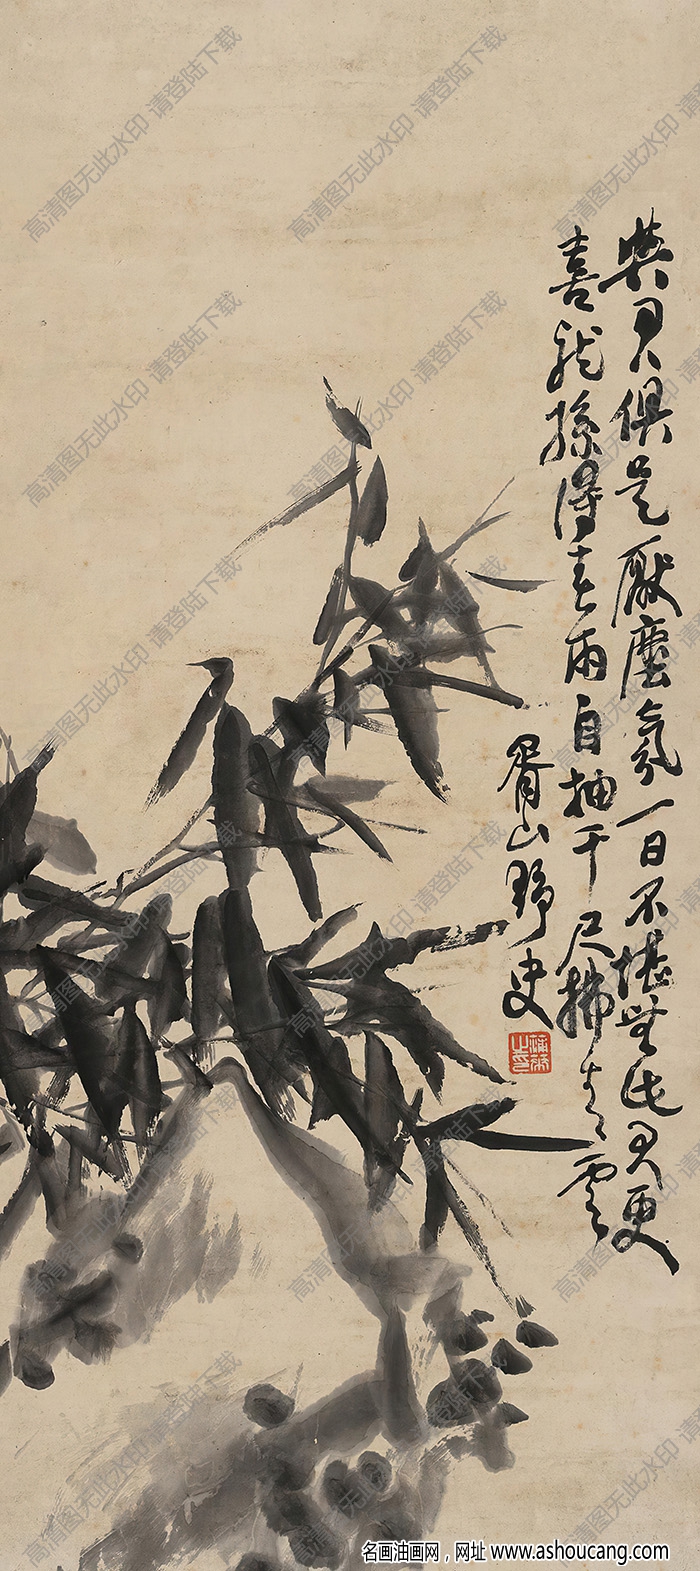 與君俱是厭塵氛一日不堪無此君更
喜龍孫得春雨自抽千尺拂青雲
胥山野史
蒲華之印
高清图无此水印 请登陆下载
名画油画网，网址 www.ashoucang.com